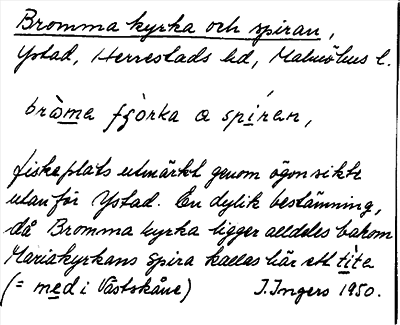 Bromma kyrka och spiran,
Ystad, Herrestads hd, Malmöhus l.
bròma fjörka a spíran,
fiskeplats utmärkt genom ögonsikte
utanför Ystad. En dylik bestämning,
då Bromma kyrka ligger alldeles bakom
Mariakyrkans spira kallas här ett títe
(= med i Västskåne) I. Ingers 1950.